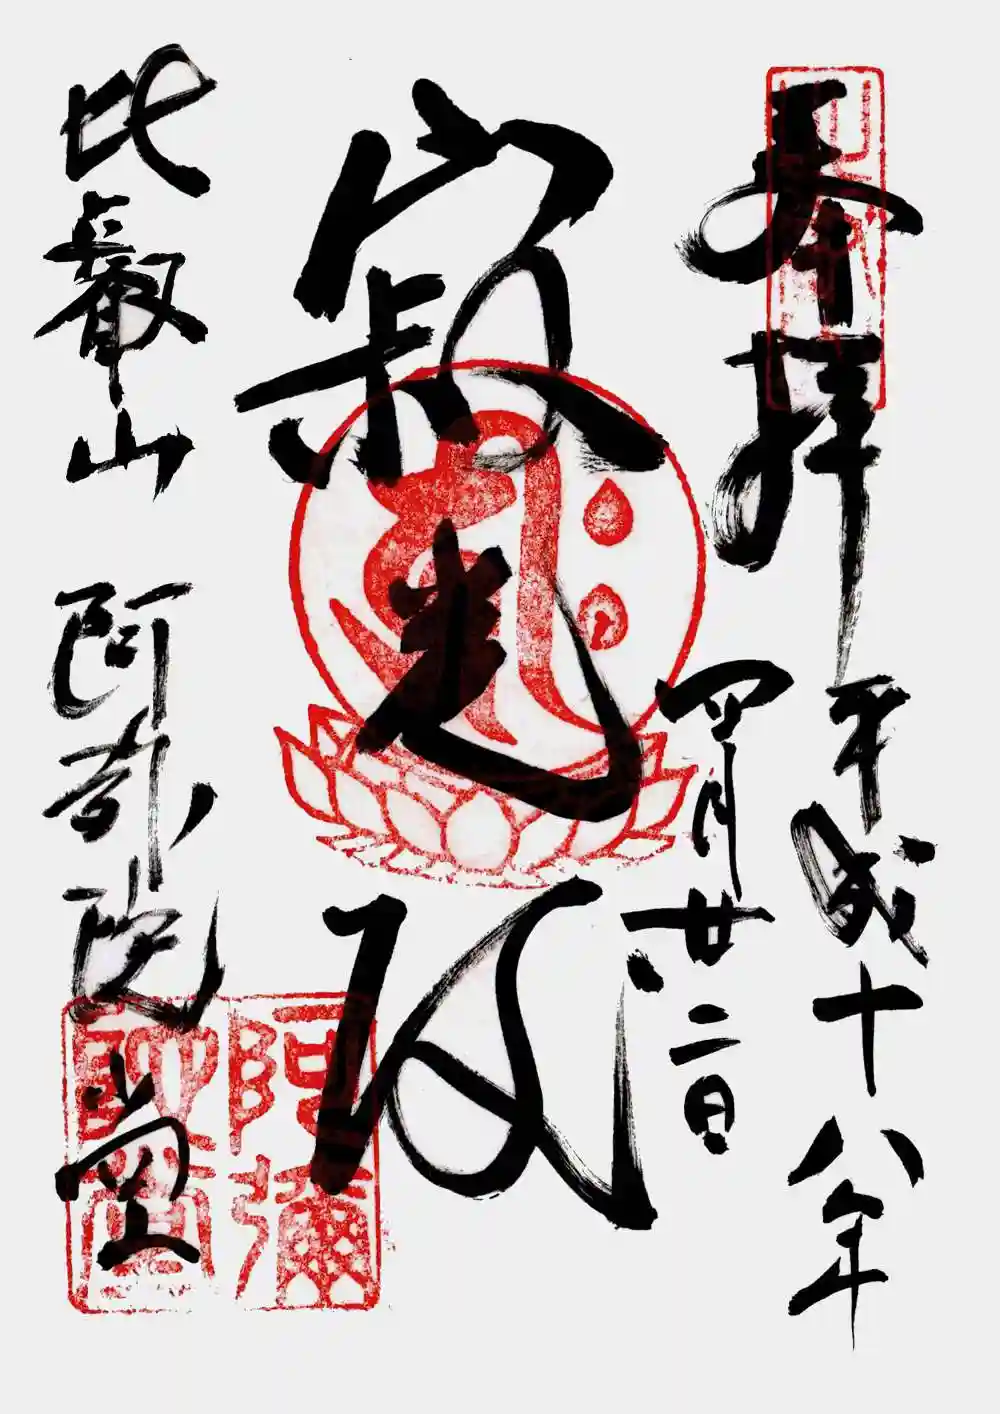 奉拝
平成十八年
四月廿二日
寂光
比叡山 阿弥陀堂
阿彌
陀堂